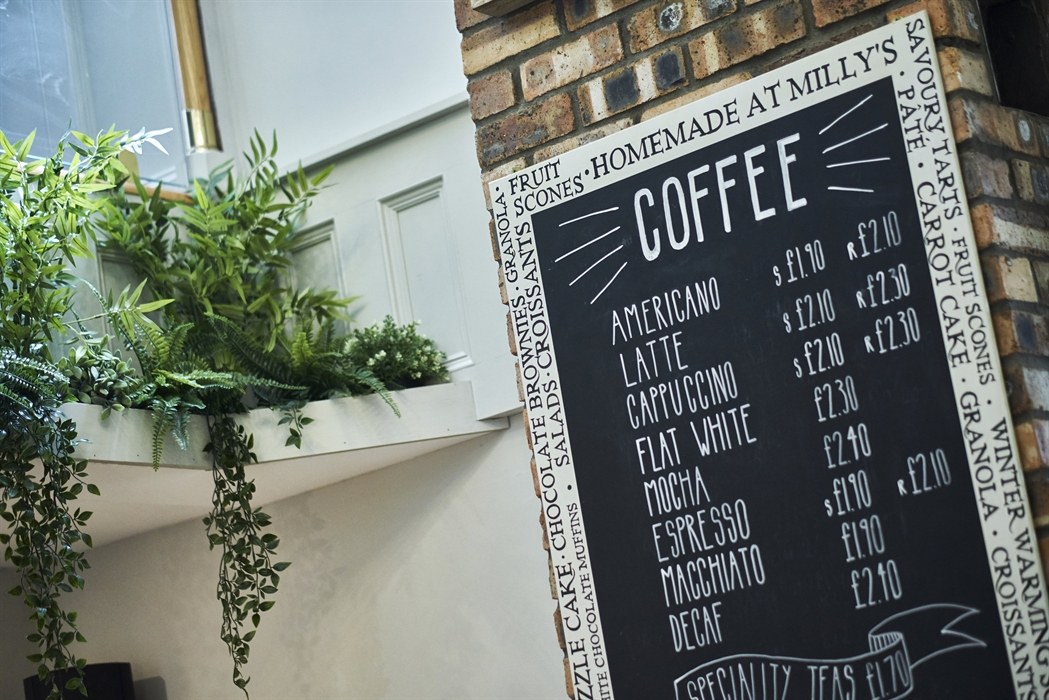 FRUIT SCONES · HOMEMADE AT MILLY'S
SAVOURY TARTS · FRUIT SCONES · WINTER WARMING
· PÂTE · CARROT CAKE · GRANOLA · CROISSANTS
CHOCOLATE BROWNIES · GRANOLA
CAKE · SALADS · CROISSANTS
CHOCOLATE MUFFINS
COFFEE
AMERICANO S £1.90 R £2.10
LATTE S £2.10 R £2.30
CAPPUCCINO S £2.10 R £2.30
FLAT WHITE £2.30
MOCHA £2.40
ESPRESSO S £1.90 R £2.10
MACCHIATO £1.90
DECAF £2.40
SPECIALITY TEAS £1.70